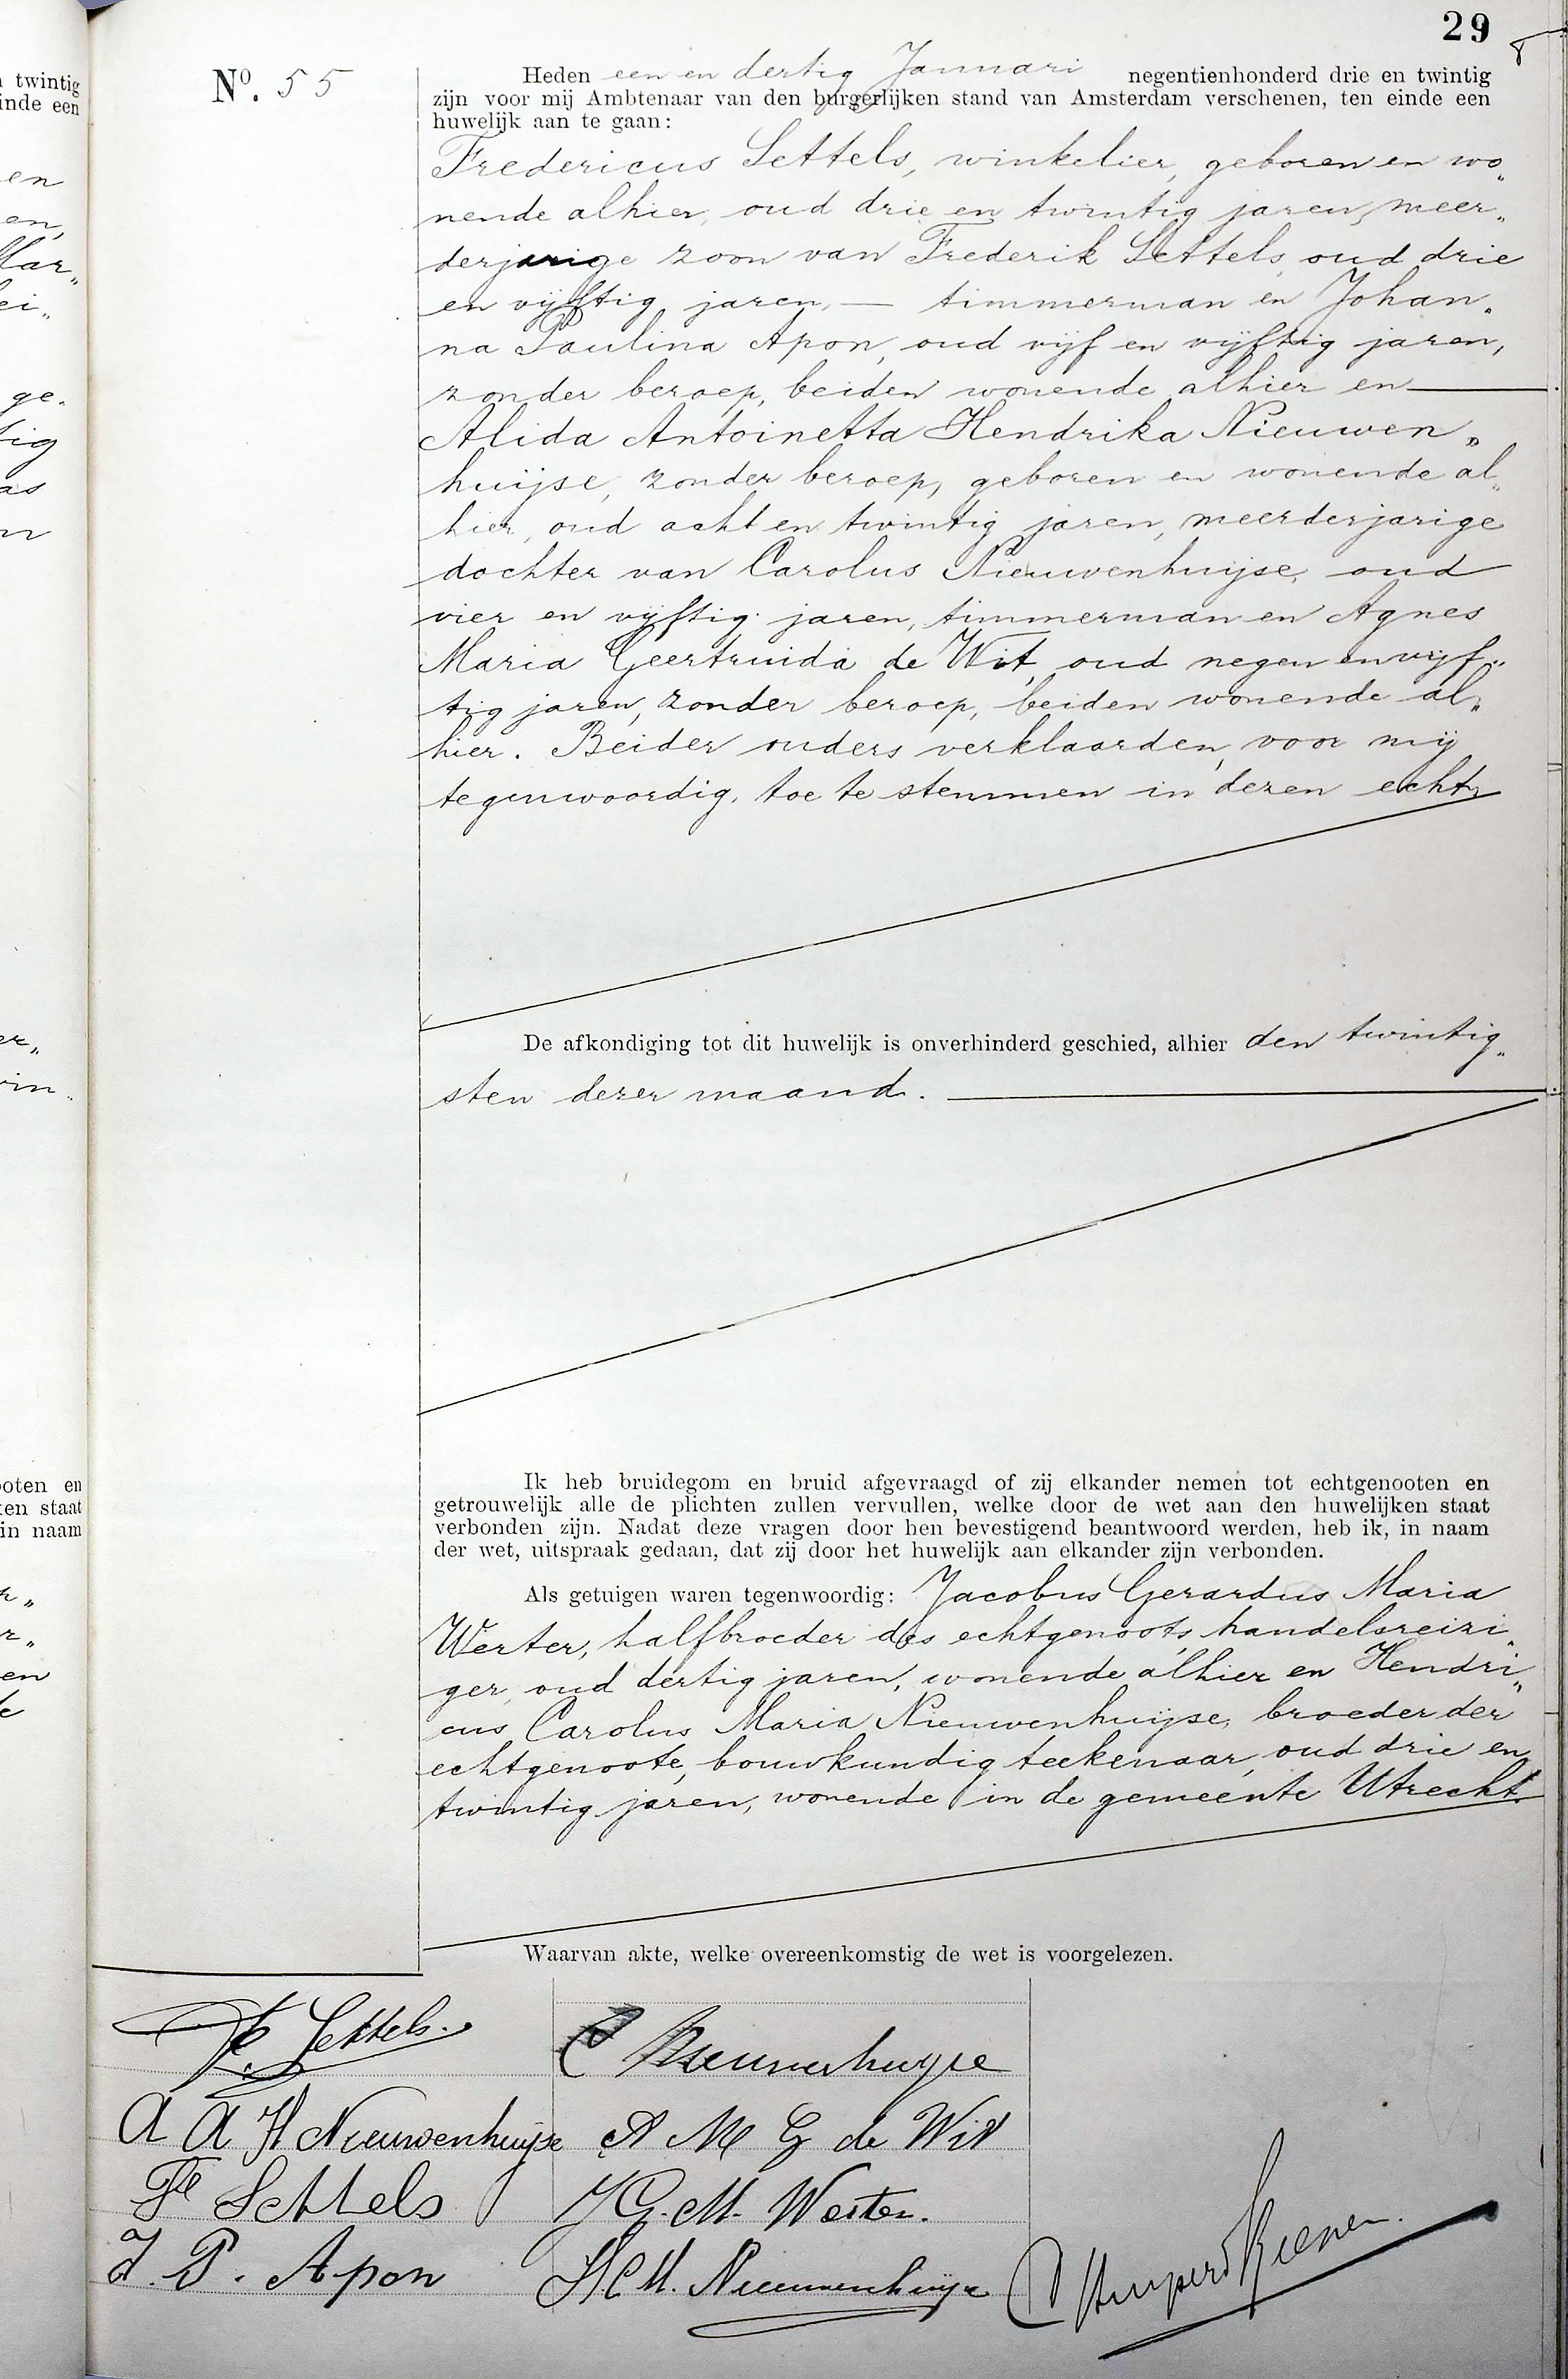 29
No. 55
Heden een en dertig Januari negentienhonderd drie en twintig
zijn voor mij Ambtenaar van den burgerlijken stand van Amsterdam verschenen, ten einde een
huwelijk aan te gaan:
Fredericus Settels, winkelier, geboren en wo„
nende alhier, oud drie en twintig jaren, meer„
derjarige zoon van Frederik Settels, oud drie
en vijftig jaren, — timmerman en Johan„
na Paulina Apon, oud vijf en vijftig jaren,
zonder beroep, beiden wonende alhier en —
Alida Antoinetta Hendrika Nieuwen„
huijse, zonder beroep, geboren en wonende al„
hier, oud acht en twintig jaren, meerderjarige
dochter van Carolus Nieuwenhuijse, oud
vier en vijftig jaren, timmerman en Agnes
Maria Geertruida de Wit, oud negen en vijf„
tig jaren, zonder beroep, beiden wonende al„
hier. Beider ouders verklaarden, voor mij
tegenwoordig, toe te stemmen in dezen echt.
De afkondiging tot dit huwelijk is onverhinderd geschied, alhier den twintig„
sten dezer maand. —
Ik heb bruidegom en bruid afgevraagd of zij elkander nemen tot echtgenooten en
getrouwelijk alle de plichten zullen vervullen, welke door de wet aan den huwelijken staat
verbonden zijn. Nadat deze vragen door hen bevestigend beantwoord werden, heb ik, in naam
der wet, uitspraak gedaan, dat zij door het huwelijk aan elkander zijn verbonden.
Als getuigen waren tegenwoordig: Jacobus Gerardus Maria
Werter, halfbroeder des echtgenoots, handelsreizi„
ger, oud dertig jaren, wonende alhier en Hendri„
cus Carolus Maria Nieuwenhuijse, broeder der
echtgenoote, bouwkundig teekenaar, oud drie en
twintig jaren, wonende in de gemeente Utrecht.
Waarvan akte, welke overeenkomstig de wet is voorgelezen.
Fr. Settels.
C Nieuwenhuijse
A A H Nieuwenhuijse
A M G de Wit
Fk Settels
J. G. M. Werter.
J. P. Apon
H C M. Nieuwenhuijse